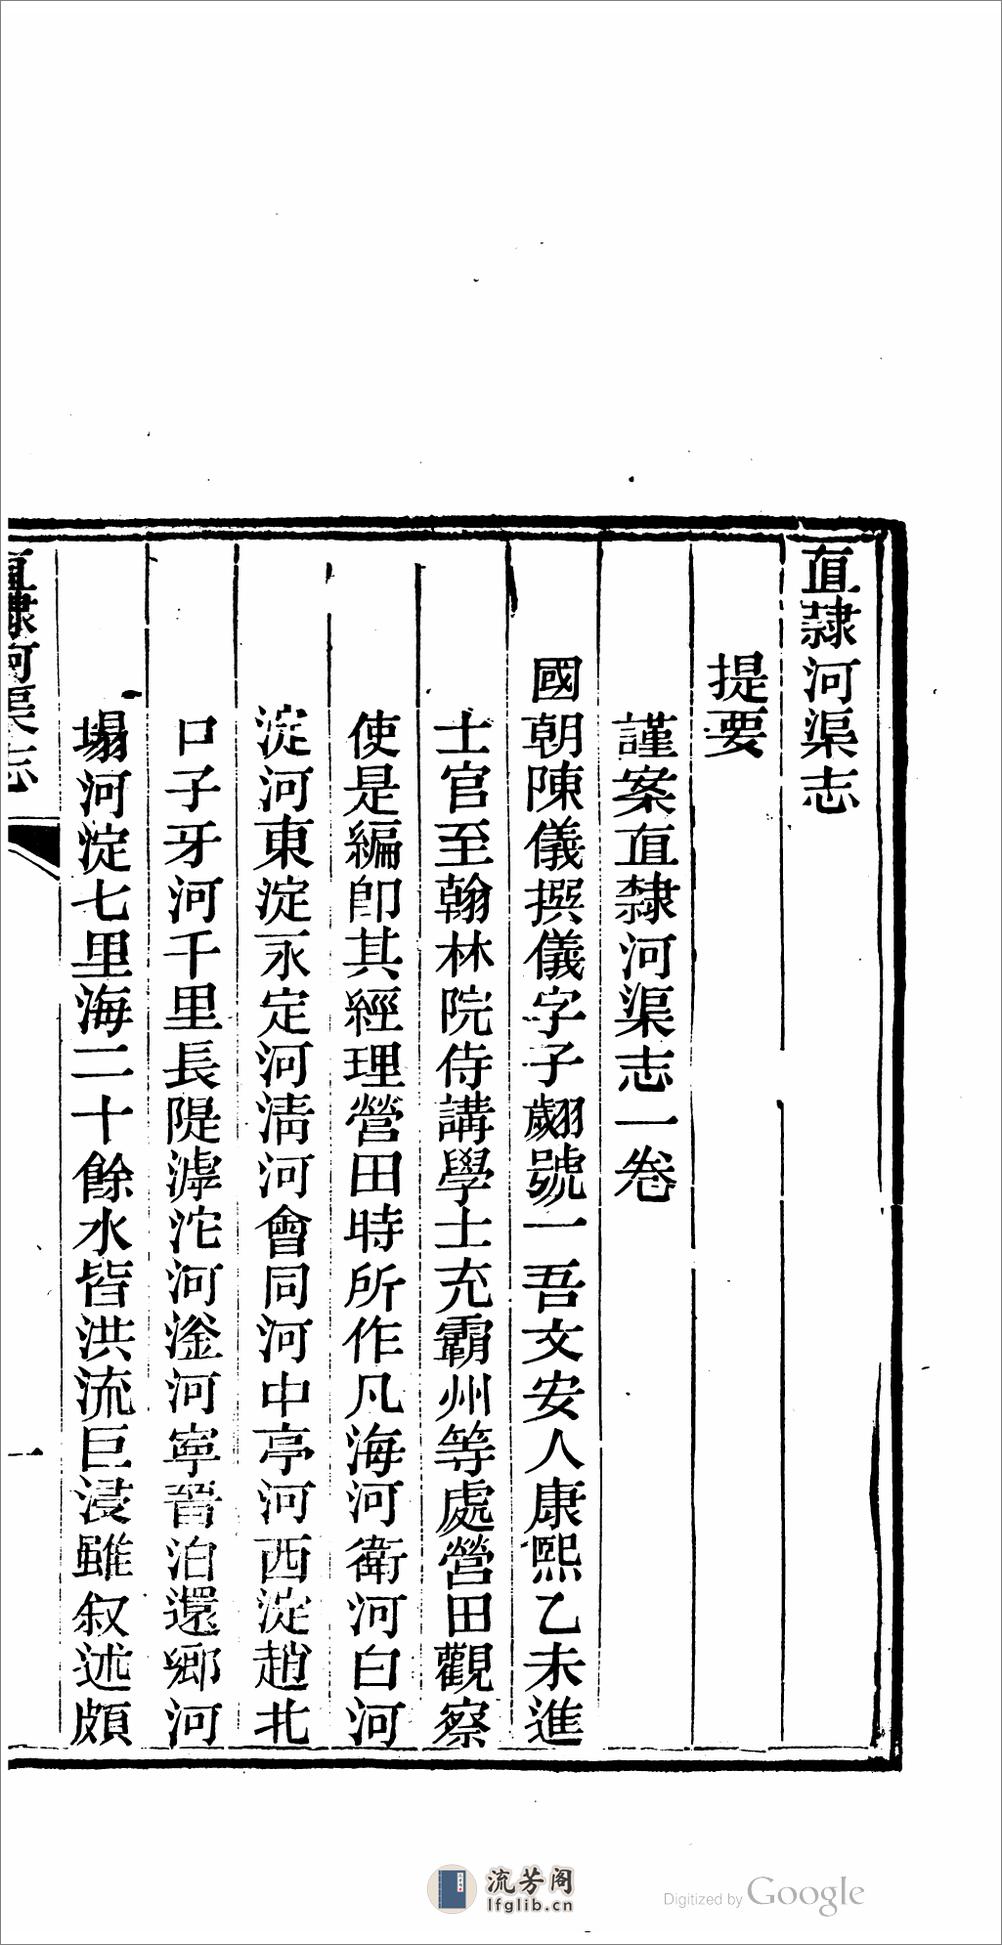 直隸河渠志
提要
謹案直隸河渠志一卷
國朝陳儀撰儀字子翽號一吾文安人康熙乙未進
士官至翰林院侍講學士充霸州等處營田觀察
使是編卽其經理營田時所作凡海河衛河白河
淀河東淀永定河淸河會同河中亭河西淀趙北
口子牙河千里長隄滹沱河滏河寧晉泊還鄉河
塌河淀七里海二十餘水皆洪流巨浸雖叙述頗
直隸河渠志
一
流芳阁
lfglib.cn
Digitized by Google